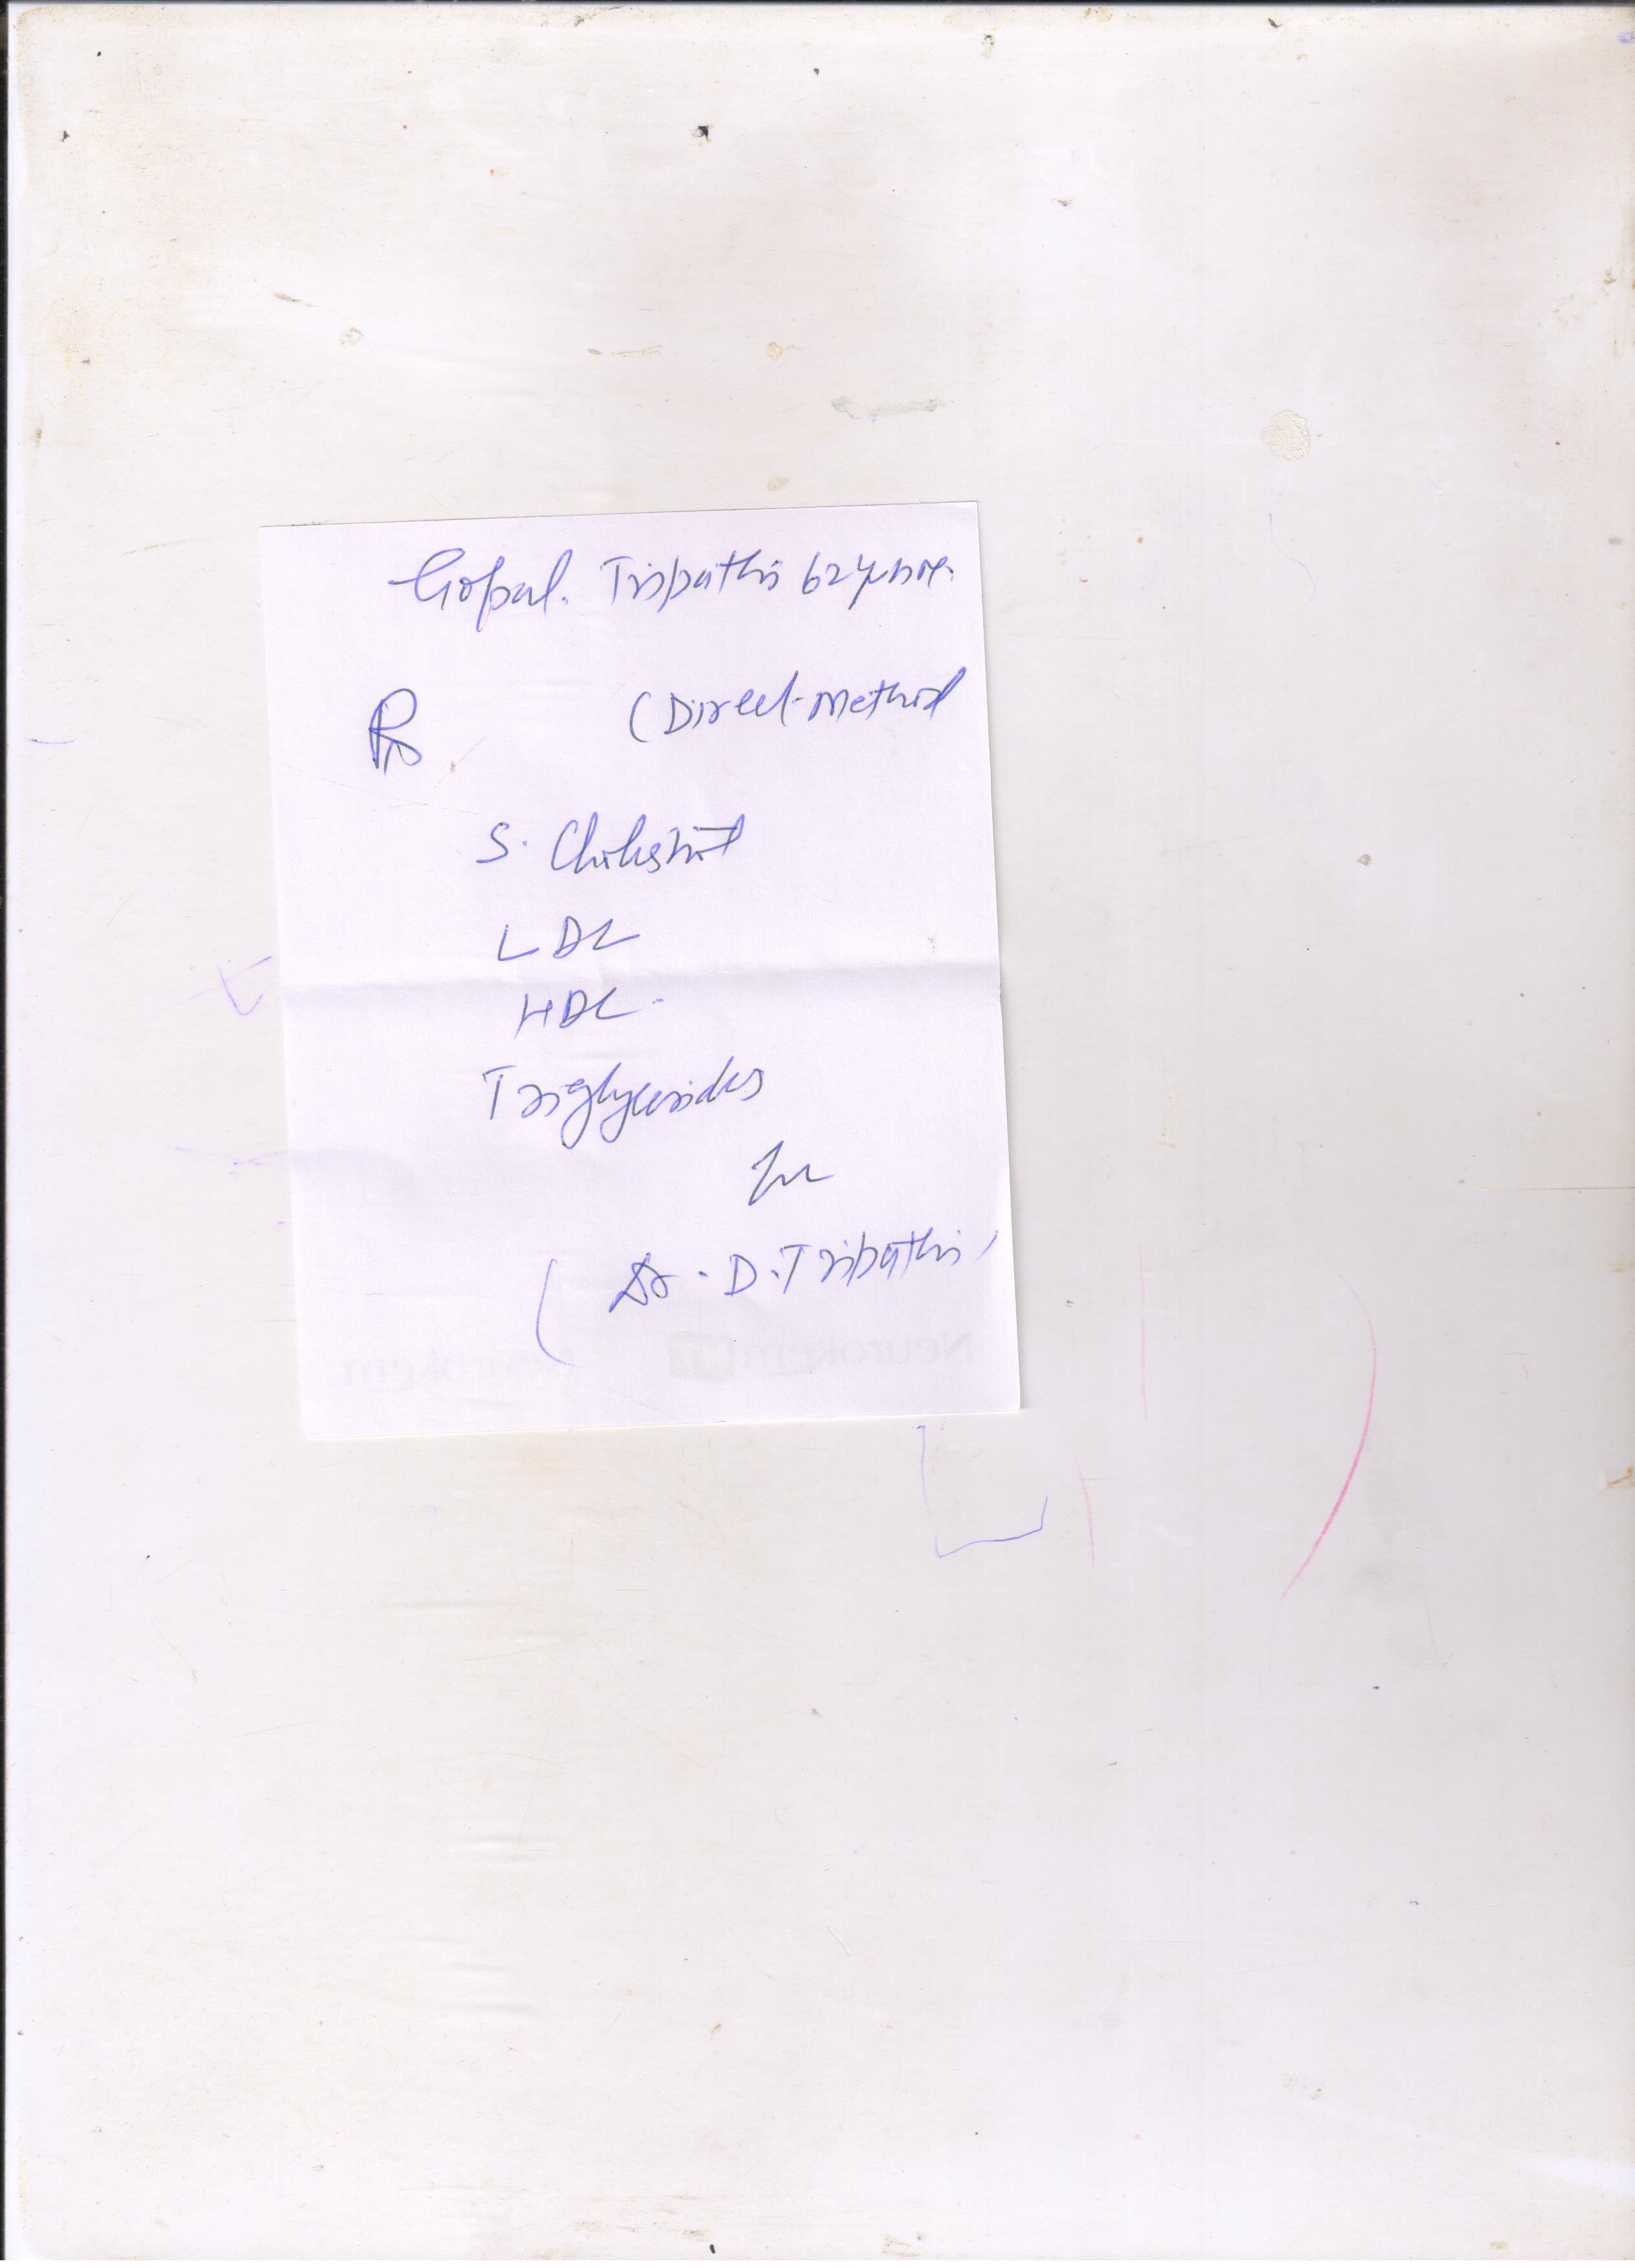 Gopal. Tripathi 62 years
Rx (Direct-Method
S. Cholesterol
LDL
HDL
Triglycerides
(Dr. D. Tripathi)
Neurokem
Neurokem